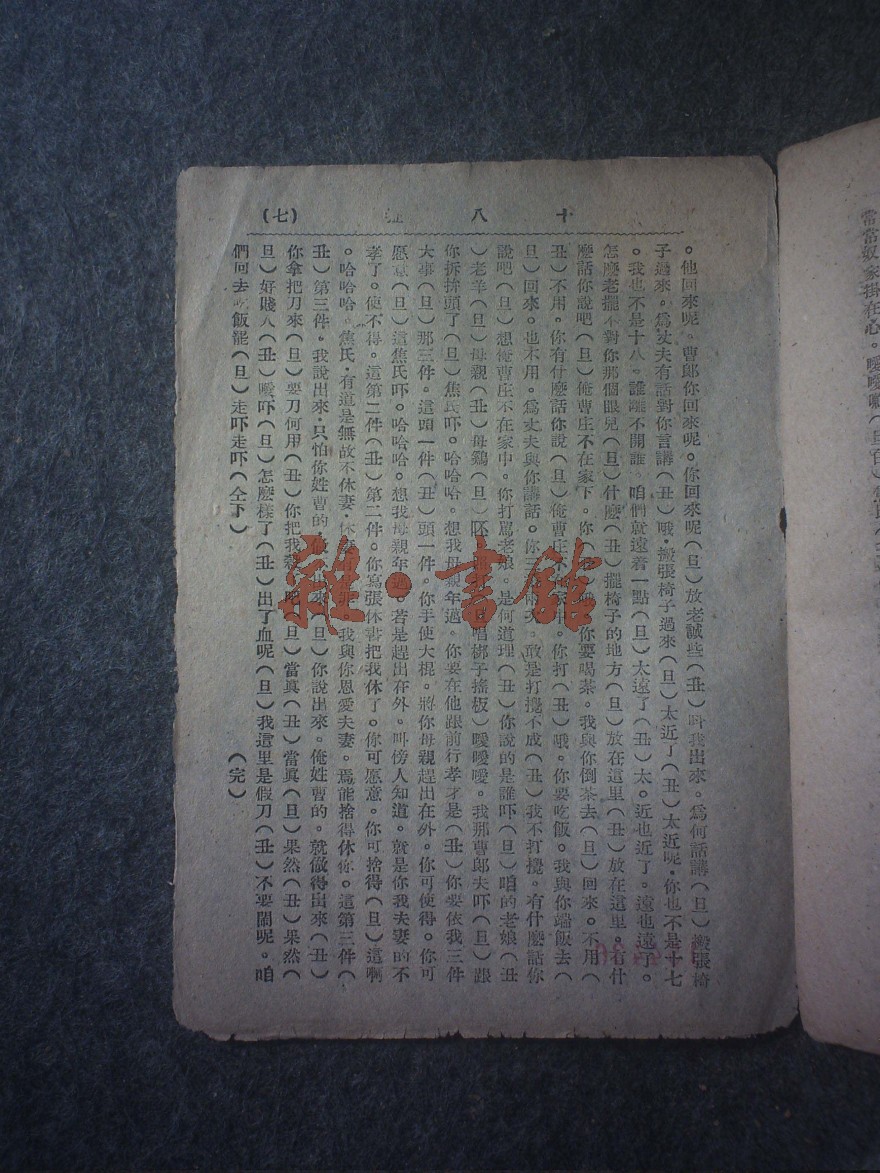 十八扯
(七)
。他回來呢。曹郞你回來呢。你回來呢(旦)放老誠些(丑)叫我出來。爲何話講(旦)搬張椅
子過來。爲丈夫有話對你言講(丑)哦。搬張椅子過來(旦)太近了(丑)太近呢。你也不是十七
。我也不是十八。誰離不開誰。咱們就遠着一點(旦)太遠了(丑)太。近也近了。遠也遠了。
怎麼老擺不對你那個眼兒(旦)什麼(丑)擺椅子的地方(旦)放在這里(丑)放在這里。有什
麼話你說吧(旦)俺曹庄不在家下。你 你要喝茶。我與你倒茶去(旦)回來。不用(
丑)不用。你有什麼話你說(旦)俺曹庄 你打(丑)哦。你要吃飯。我與你端飯去(
旦)回來。也不用。爲丈夫與你講話。你三 敢是打攪不成(丑)我不打攪。有什麼話你
說吧(旦)想俺曹庄不在家中。你打駡老娘。是何道理(丑)你說的是誰吓(旦)咱的老娘(丑
)老羊(旦)母親(丑)母鷄(旦) 唱梆子搖板)噯噯噯。我那曹郞夫吓(旦)跟
你拆掉頭了(旦)焦氏吓。哈哈哈。想我母親年邁。你要在他跟前行孝才是(丑)你要依我三件
大事(旦)那三件。這頭一件(丑)頭一件。你手使大棍。將你母親趕出在外。你可使得。你可
愿意(旦)這焦氏吓。哈哈哈。想我母親年邁。若是趕出在外。叫傍人知道。就是你我夫妻的不
孝了。使不得。這第二件(丑)第二件。你寫張休書把我休了。你可愿意。你可捨得(旦)這啊
。哈哈哈。焦氏。有道是無故不休妻。休 我與你恩愛夫妻。焉能捨得休你。這第三件(
丑)第三件。我說出來。只怕你姓曹的。 出來(旦)你說出來。俺姓曹的。就做得出來(丑)
你拿把刀來(旦)要刀何用(丑)你把我 吧(旦)當眞(丑)當眞(旦)果然(丑)果然(
旦)好賤人(丑)噯吓(旦)怎麼樣了(丑)出了血呢(旦)我這里是假刀(丑)不要鬧呢。咱
們回去吃飯罷(旦)走吓走吓(仝下)
(完)
常常奴家掛在心。噯噯噯
雜·書館